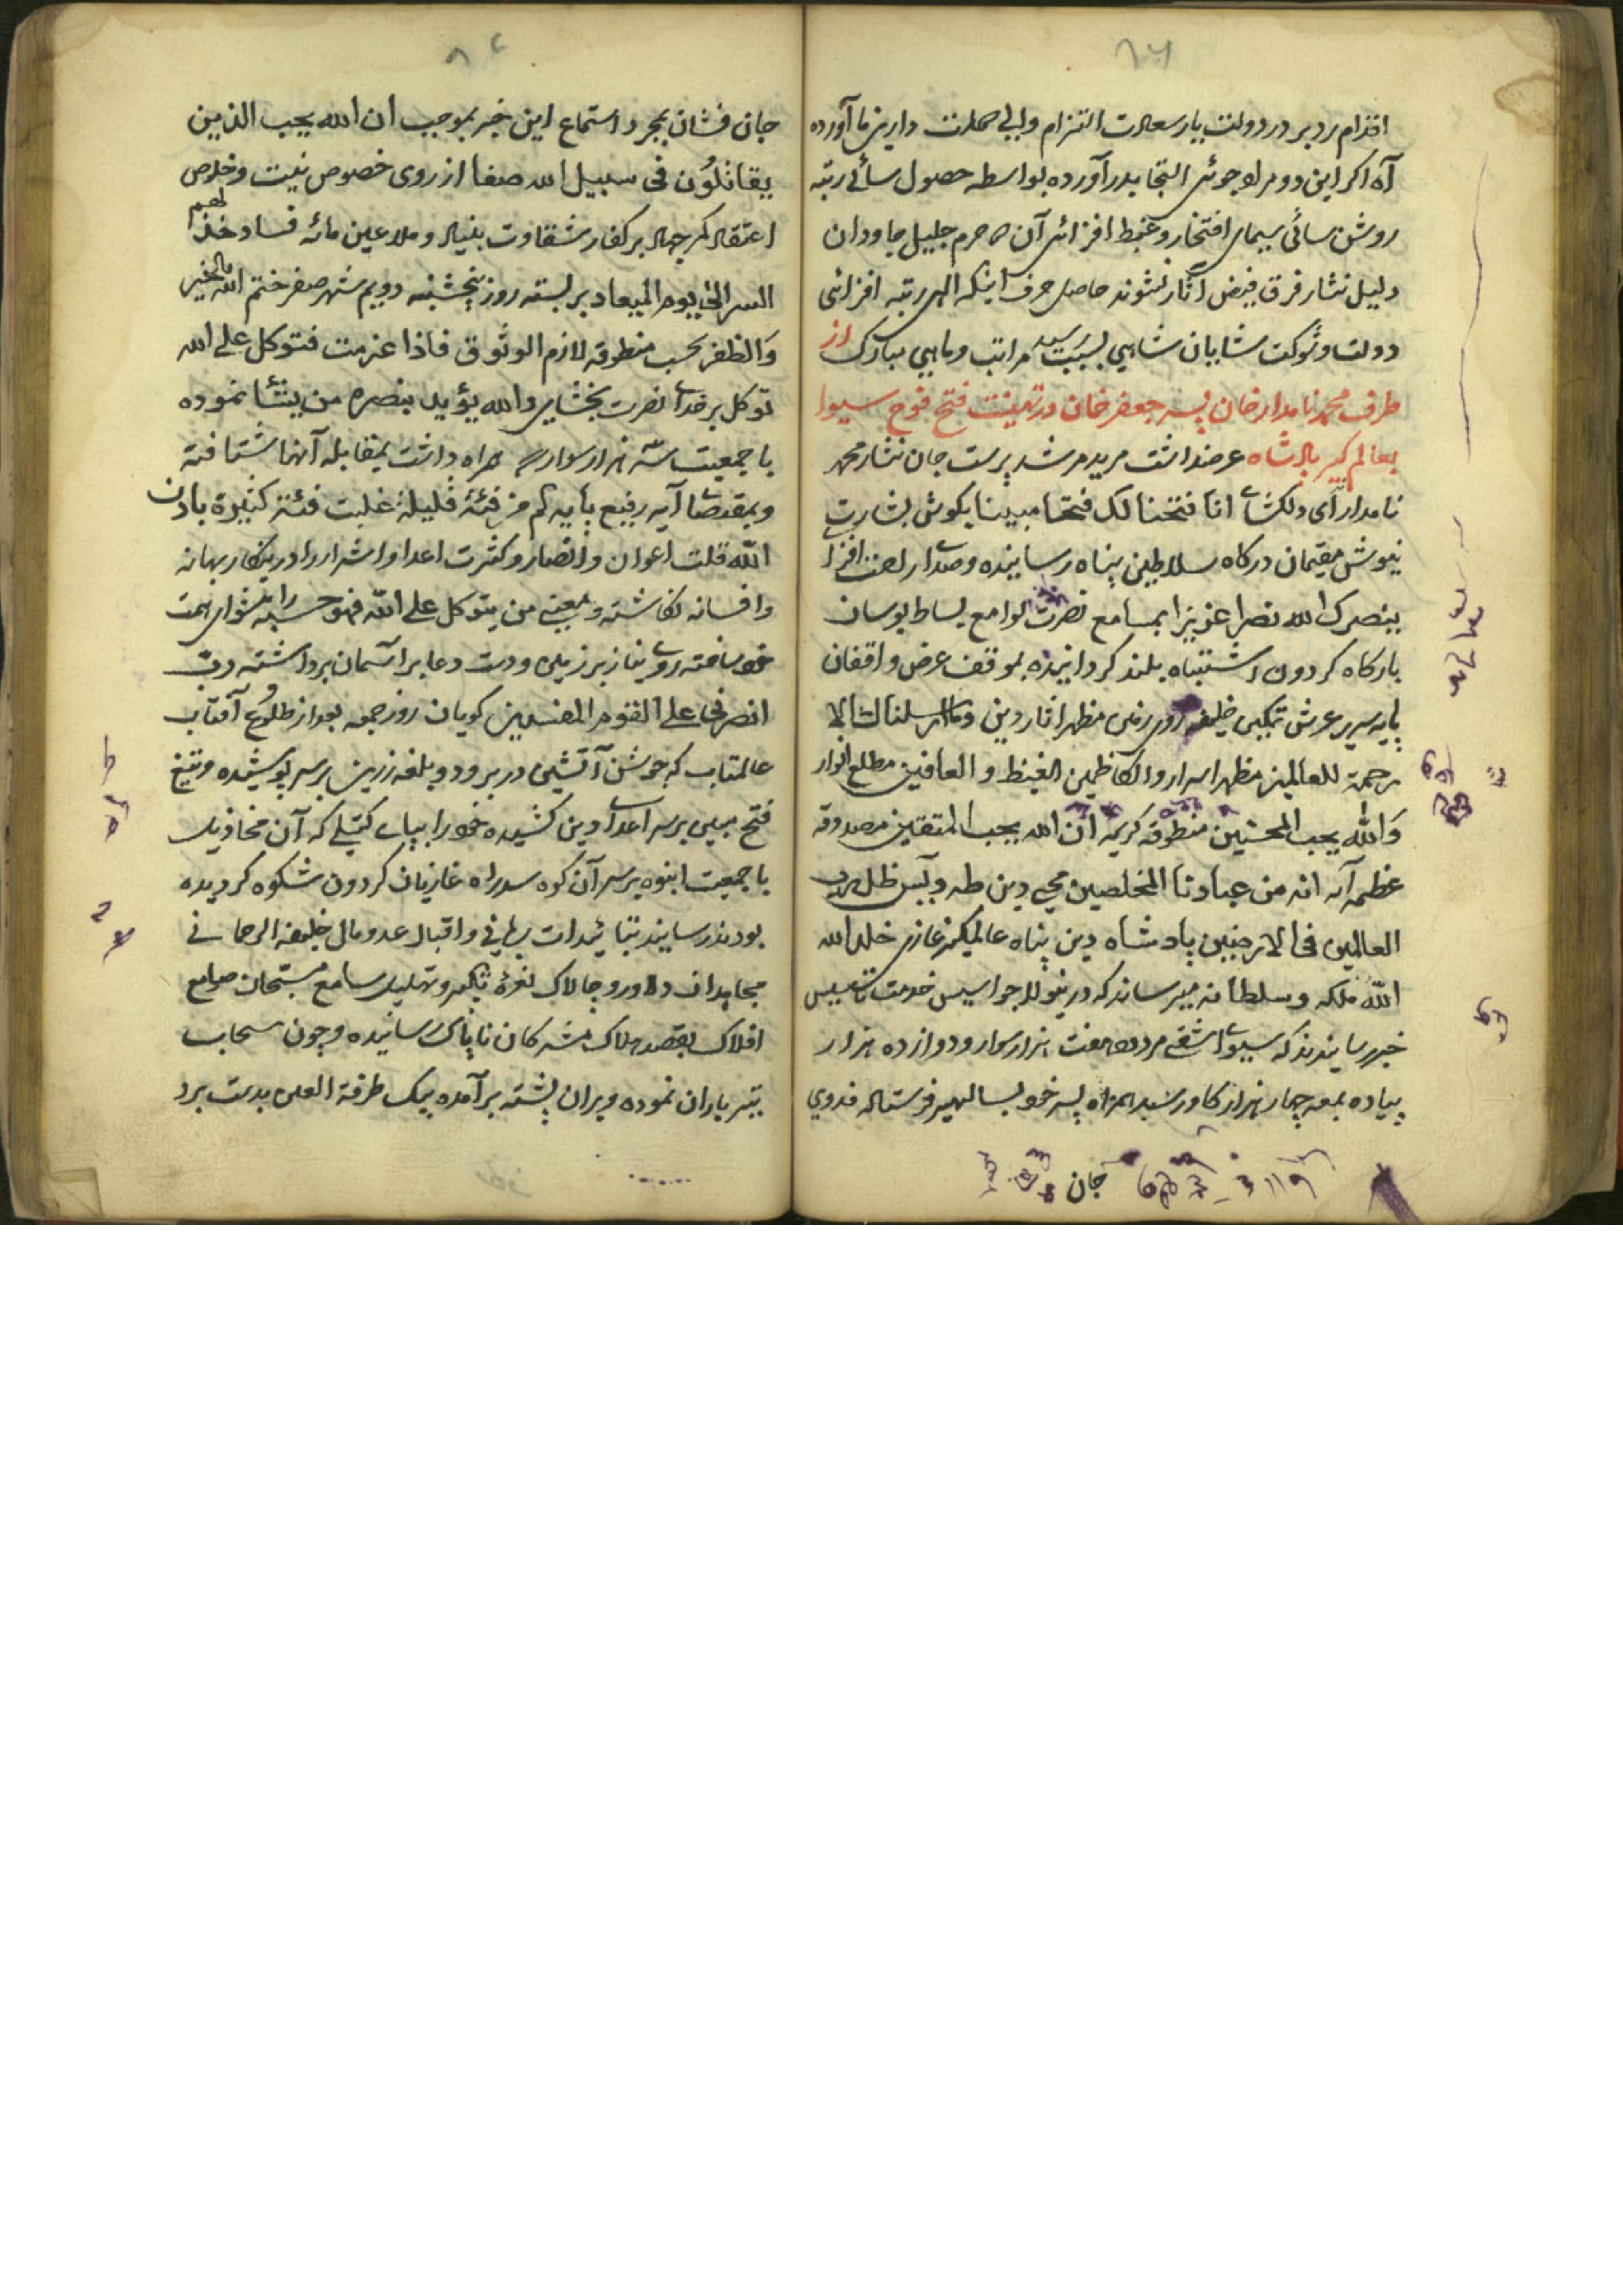 اقدام رد بر در دولت یار سعادت التزام و لبی دارین ما آورده
آه اکر این دو مراد جوئی التجا بدر آورده بواسطه حصول سائی رتبه
روشن سائی سیمای افتخار و غبط افزائی آن حرم جلیل جاودان
دلیل نثار فرق فیض آثار نشوند حاصل حرف اینکه الهی رتبه افزائی
دولت و شوکت شایان شاهی مراتب و ماهی مبارک از
طرف محمد نامدار خان پسر جعفر خان در تهنیت فتح فوج سیوا
بعالم کیر بادشاه عرضداشت مرید مرشد پرست جان نثار محمد
نامدار آی دلکشای انا فتحنا لک فتحا مبینا بکوش بشارت
نیوش مقیمان درکاه سلاطین پناه رسانیده و صدای افزا
ینصرک الله نصرا عزیزا بمسامع نصرت لوامع بساط بوسان
بارکاه کردون اشتباه بلند کردانیده بموقف عرض واقفان
پایه سریر عرش تمکین خلیفه روی زمین مظهر اثار دین وما ارسلناک الا
رحمة للعالمین مظهر اسرار والکاظمین الغیظ و العافین مطلع انوار
والله یحب المحسنین منطوقه کریمه ان الله یحب المتقین مصدوقه
عظمه آیه انه من عبادنا المخلصین محی دین طه و یس ظل رب
العالمین فی الارضین پادشاه دین پناه عالمکیر غازی خلد الله
الله ملکه و سلطانه میرساند که درینولا جواسیس خدمت تاسیس
خبر رسانیدند که سیوای اشقی مردود هفت هزار سوار و دوازده هزار
پیاده بمعه چهار هزار کاو رسد همراه پسر خود بسالهیر فرستاده فدوی
جان
جان فشان بمجرد استماع این خبر بموجب ان الله یحب الذین
یقاتلون فی سبیل الله صفا از روی خصوص نیت و خلوص
اعتقاد کمر جهاد بر کفار شقاوت بنیاد و ملاعین مائه فساد خذلهم
الی یوم المیعاد بر بسته روز پنجشنبه دویم شهر صفر ختم الله بالخیر
والظفر بحسب منطوقه لازم الوثوق فاذا عزمت فتوکل علی الله
توکل بر خدای نصرت بخشای والله یؤید بنصره من یشا نموده
با جمعیت سه هزار سوار که همراه داشت بمقابله آنها شتافته
و بمقتضای آیه رفیع پایه کم من فئة قلیلة غلبت فئة کثیرة باذن
الله قلت اعوان و انصار و کثرت اعدا و اشرار را درینکار بهانه
و افسانه انکاشته و معنی من یتوکل علی الله فهو حسبه را پیشوای همت
خود ساخته روی نیاز بر زمین و دست دعا بر اسمان برداشته رب
انصرنی علی القوم المفسدین کویان روز جمعه بعد از طلوع آفتاب
عالمتاب که جوشن آتشین در بر و دوبلغه زرین بر سر پوشیده و تیغ
فتح مبین بر سر اعدای دین کشیده خود را بپای کتیلی که آن مخاذیل
با جمعیت انبوه بر سر آن کوه سد راه غازیان کردون شکوه کردیده
بودند رسانید بتائیدات ربانی و اقبال عدو مال خلیفه الرحمانی
مجاهدان دلاور و چالاک نعره تکبیر و تهلیل بسامع مسبحان صوامع
افلاک بقصد هلاک مشرکان ناپاک رسانیده و چون سحاب
تیر باران نموده و بران پشته برآمده بیک طرفة العین بدست برد